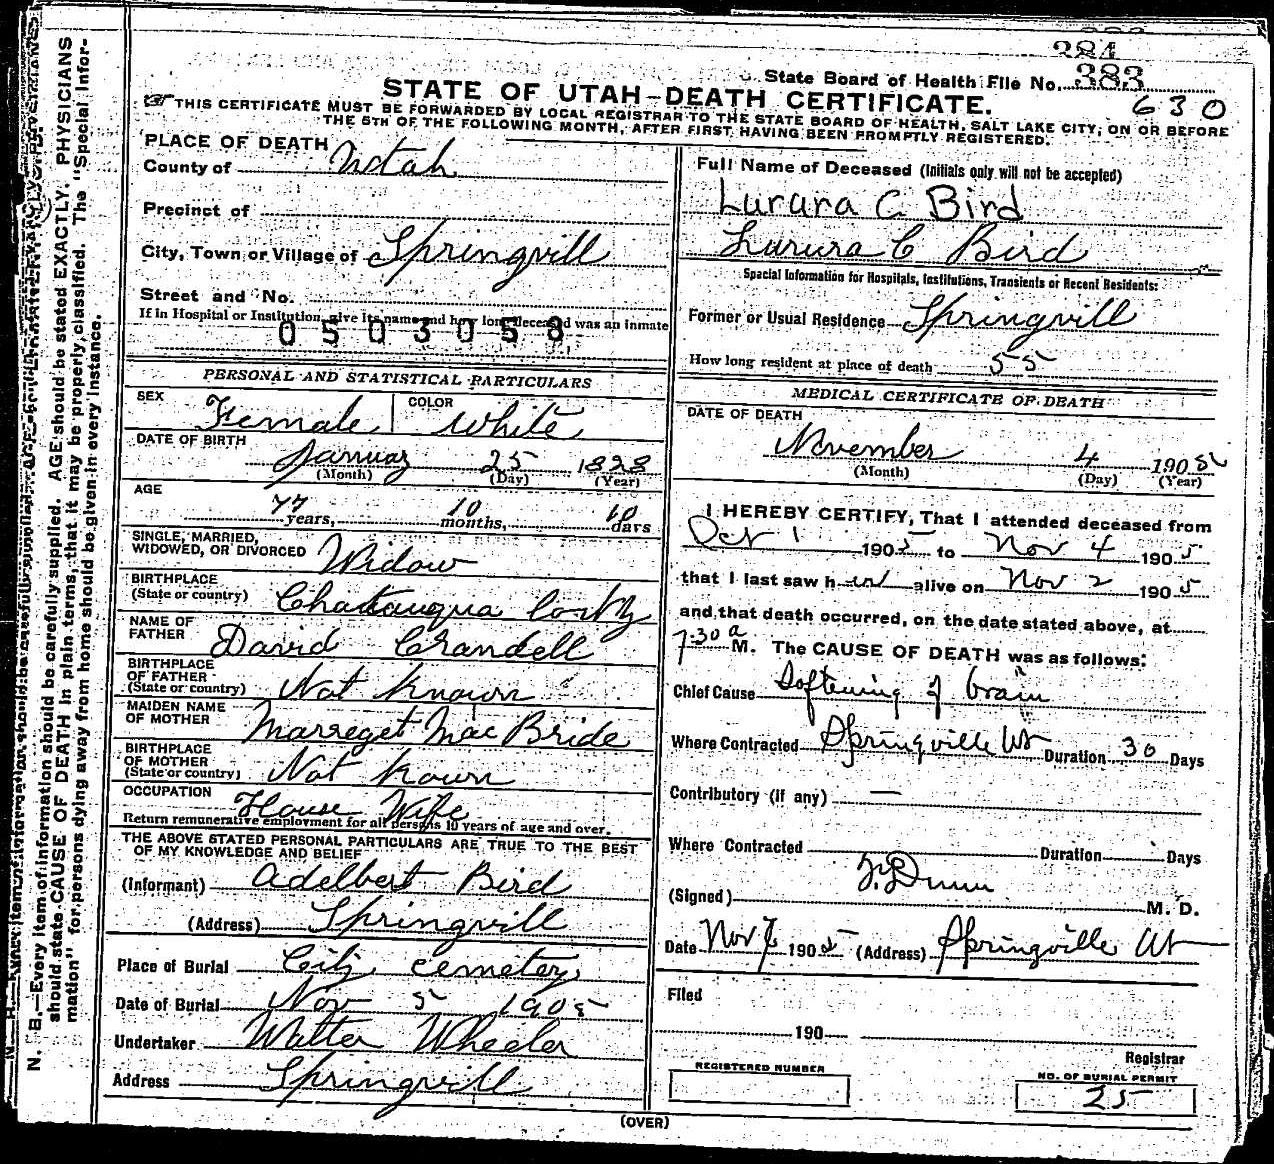 284
State Board of Health File No. 383
STATE OF UTAH-DEATH CERTIFICATE.
630
THIS CERTIFICATE MUST BE FORWARDED BY LOCAL REGISTRAR TO THE STATE BOARD OF HEALTH, SALT LAKE CITY, ON OR BEFORE
THE 5TH OF THE FOLLOWING MONTH, AFTER FIRST HAVING BEEN PROMPTLY REGISTERED.
PLACE OF DEATH
County of Utah
Precinct of
City, Town or Village of Springvill
Street and No.
If in Hospital or Institution, give its name and how long deceased was an inmate
0503058
PERSONAL AND STATISTICAL PARTICULARS
SEX Female COLOR White
DATE OF BIRTH
January 25 1828
(Month) (Day) (Year)
AGE
77 years, 10 months, 10 days
SINGLE, MARRIED,
WIDOWED, OR DIVORCED Widow
BIRTHPLACE
(State or country) Chatauqua
NAME OF
FATHER David Crandell
BIRTHPLACE
OF FATHER
(State or country) Not Known
MAIDEN NAME
OF MOTHER Marreget Mac Bride
BIRTHPLACE
OF MOTHER
(State or country) Not Kown
OCCUPATION House Wife
Return remunerative employment for all persons 10 years of age and over.
THE ABOVE STATED PERSONAL PARTICULARS ARE TRUE TO THE BEST
OF MY KNOWLEDGE AND BELIEF
(Informant) Adelbert Bird
(Address) Springvill
Place of Burial City cemetery
Date of Burial Nov 5 1905
Undertaker Walter Wheeler
Address Springvill
Full Name of Deceased (Initials only will not be accepted)
Lurara C Bird
Lurura C Bird
Special Information for Hospitals, Institutions, Transients or Recent Residents:
Former or Usual Residence Springvill
How long resident at place of death 55
MEDICAL CERTIFICATE OF DEATH
DATE OF DEATH
November 4 1905
(Month) (Day) (Year)
I HEREBY CERTIFY, That I attended deceased from
Oct 1 1905 to Nov 4 1905
that I last saw her alive on Nov 2 1905
and that death occurred, on the date stated above, at
7.30 a M. The CAUSE OF DEATH was as follows:
Chief Cause Softening of brain
Where Contracted Springville Ut Duration 30 Days
Contributory (if any) —
Where Contracted Duration Days
(Signed) Dunn M. D.
Date Nov 1905 (Address) Springville Ut
Filed
190
Registrar
REGISTERED NUMBER
NO. OF BURIAL PERMIT
25
(OVER)
N. B.—Every item of information should be carefully supplied. AGE should be stated EXACTLY. PHYSICIANS
should state CAUSE OF DEATH in plain terms, that it may be properly classified. The "Special Infor-
mation" for persons dying away from home should be given in every instance.